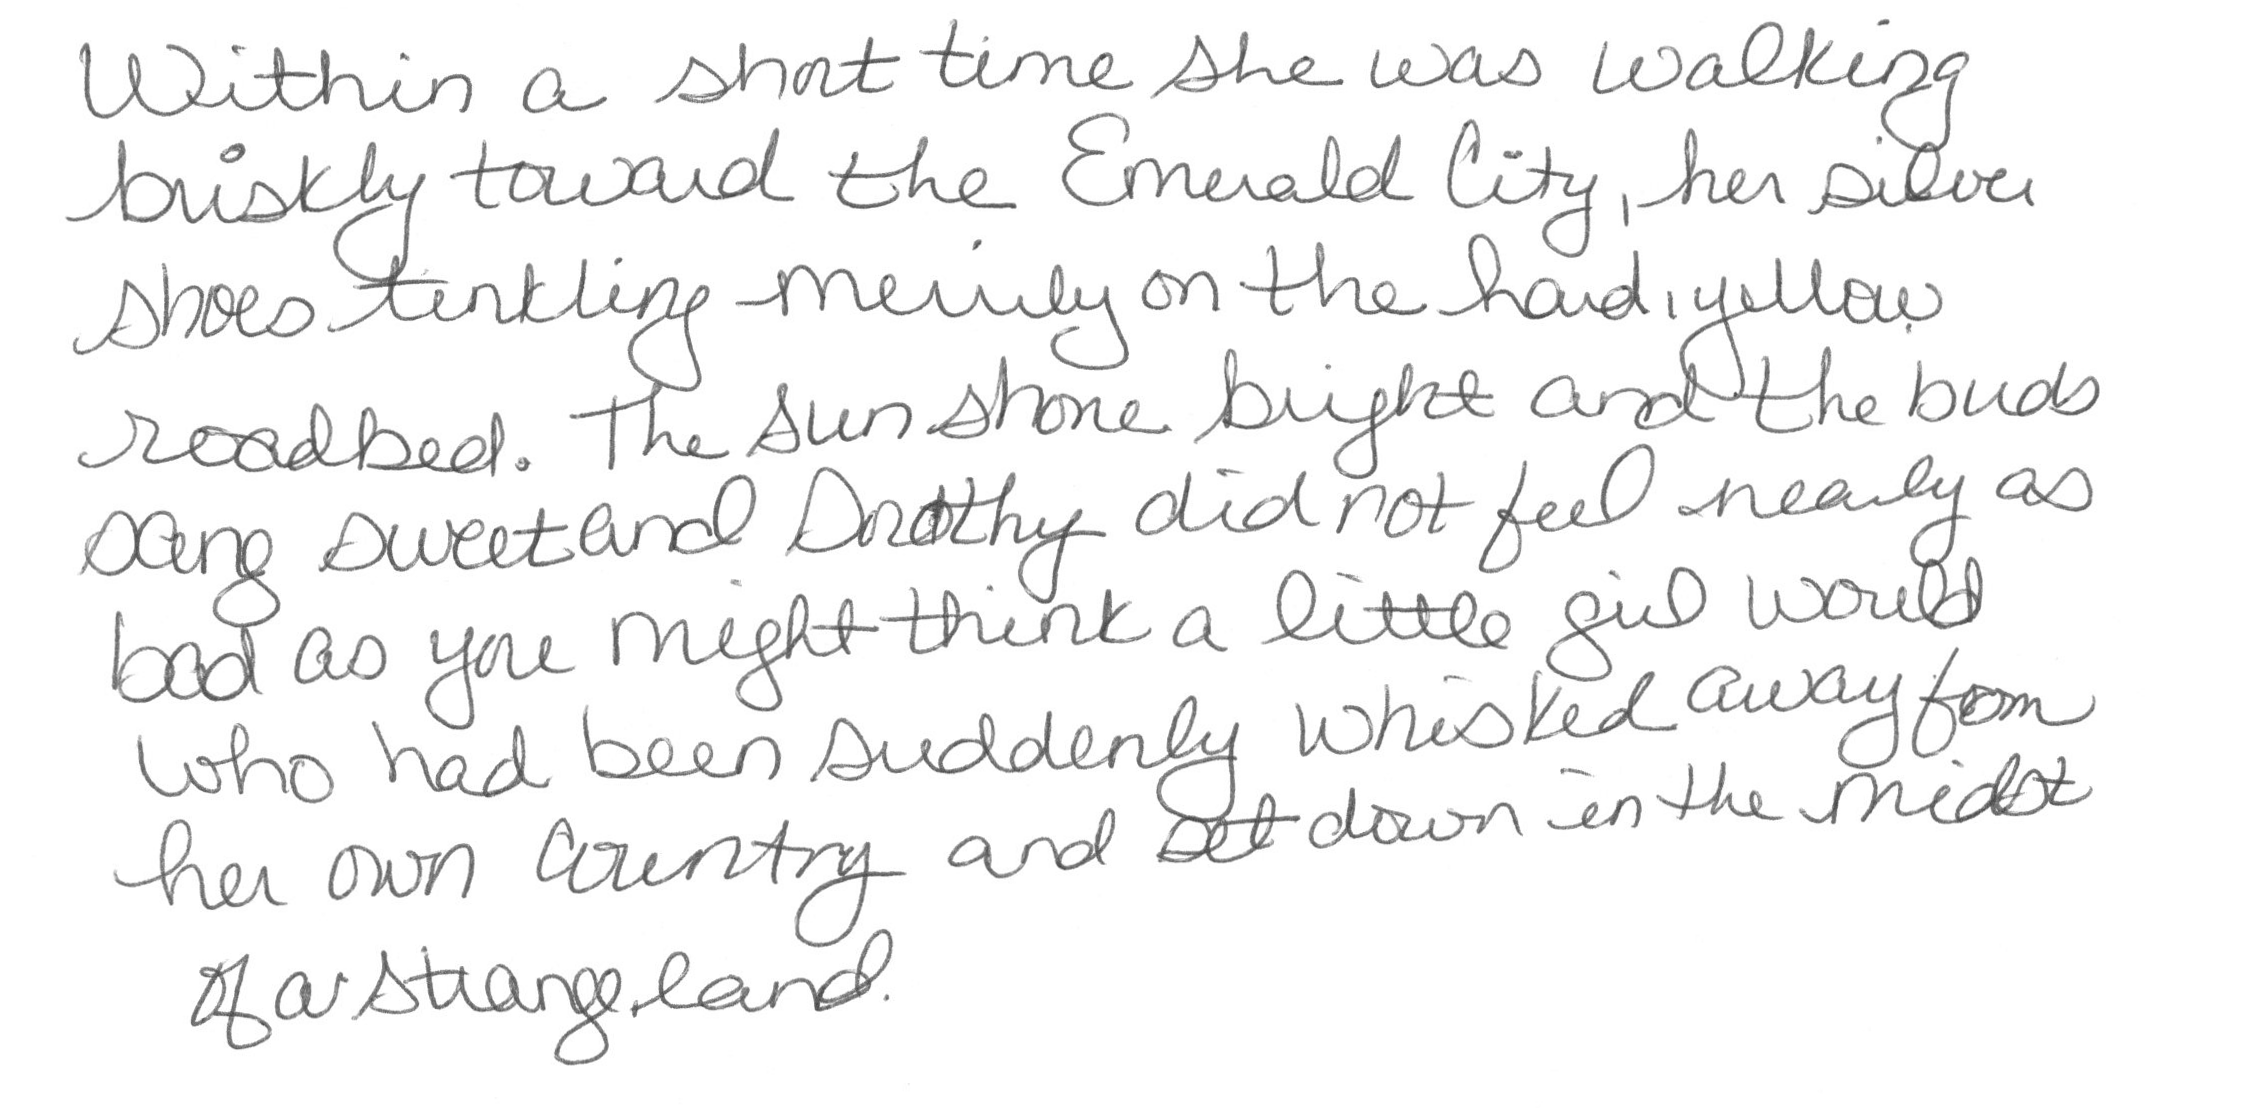 Within a short time she was walking
briskly toward the Emerald City, her silver
shoes tinkling merrily on the hard, yellow
roadbed. The sun shone bright and the birds
sang sweet and Dorothy did not feel nearly as
bad as you might think a little girl would
who had been suddenly whisked away from
her own country and set down in the midst
of a strange land.